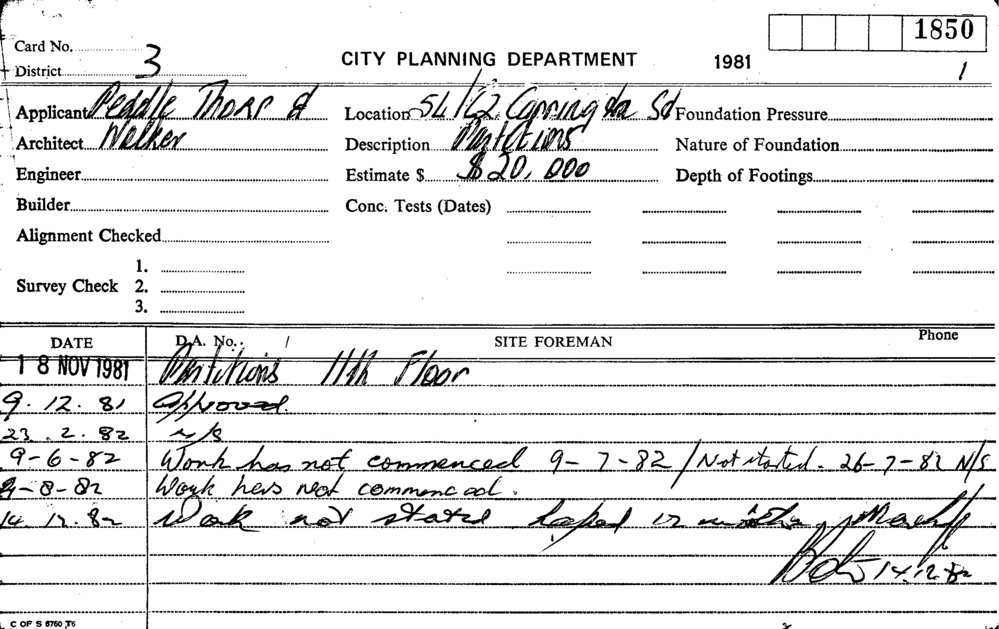 1850
Card No. 3
CITY PLANNING DEPARTMENT 1981
District 1
Applicant Peddle Thorp & Location 54/62 Carrington St Foundation Pressure
Architect Walker Description Partitions Nature of Foundation
Engineer Estimate $ $20,000 Depth of Footings
Builder Conc. Tests (Dates)
Alignment Checked
1.
Survey Check 2.
3.
DATE D.A. No. / SITE FOREMAN Phone
18 NOV 1981 Partitions 11th Floor
9.12.81 Approved.
23.2.82 n/s
9-6-82 Work has not commenced 9-7-82 / Not started. 26-7-82 N/S
9-8-82 Work has not commenced.
14.12.82 Work not stated lapsed 12 months
14.12.82
C OF S 6760 T6